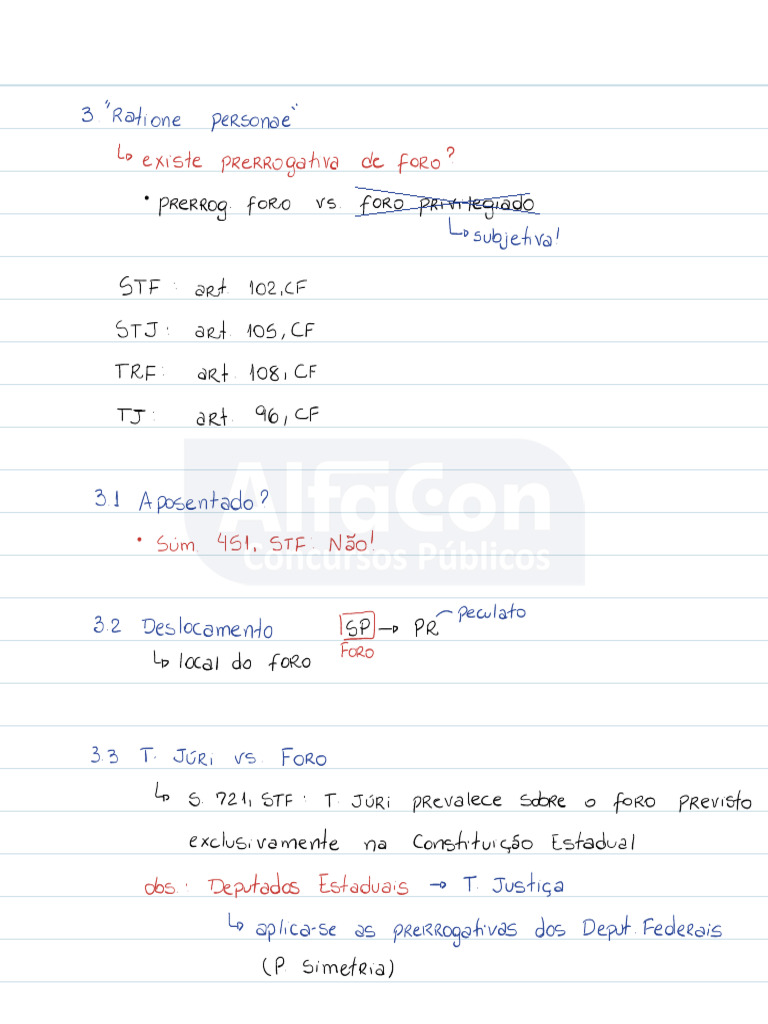 3. "Ratione personae"
↳ existe prerrogativa de foro?
• prerrog. foro vs. foro privilegiado
↳ subjetiva!
STF: art. 102, CF
STJ: art. 105, CF
TRF: art. 108, CF
TJ: art. 96, CF
AlfaCon
Concursos Públicos
3.1 Aposentado?
• Súm. 451, STF: Não!
3.2 Deslocamento SP → PR peculato
FORO
↳ local do foro
3.3 T. Júri vs. Foro
↳ S. 721, STF: T. Júri prevalece sobre o foro previsto
exclusivamente na Constituição Estadual
obs.: Deputados Estaduais → T. Justiça
↳ aplica-se as prerrogativas dos Deput. Federais
(P. Simetria)